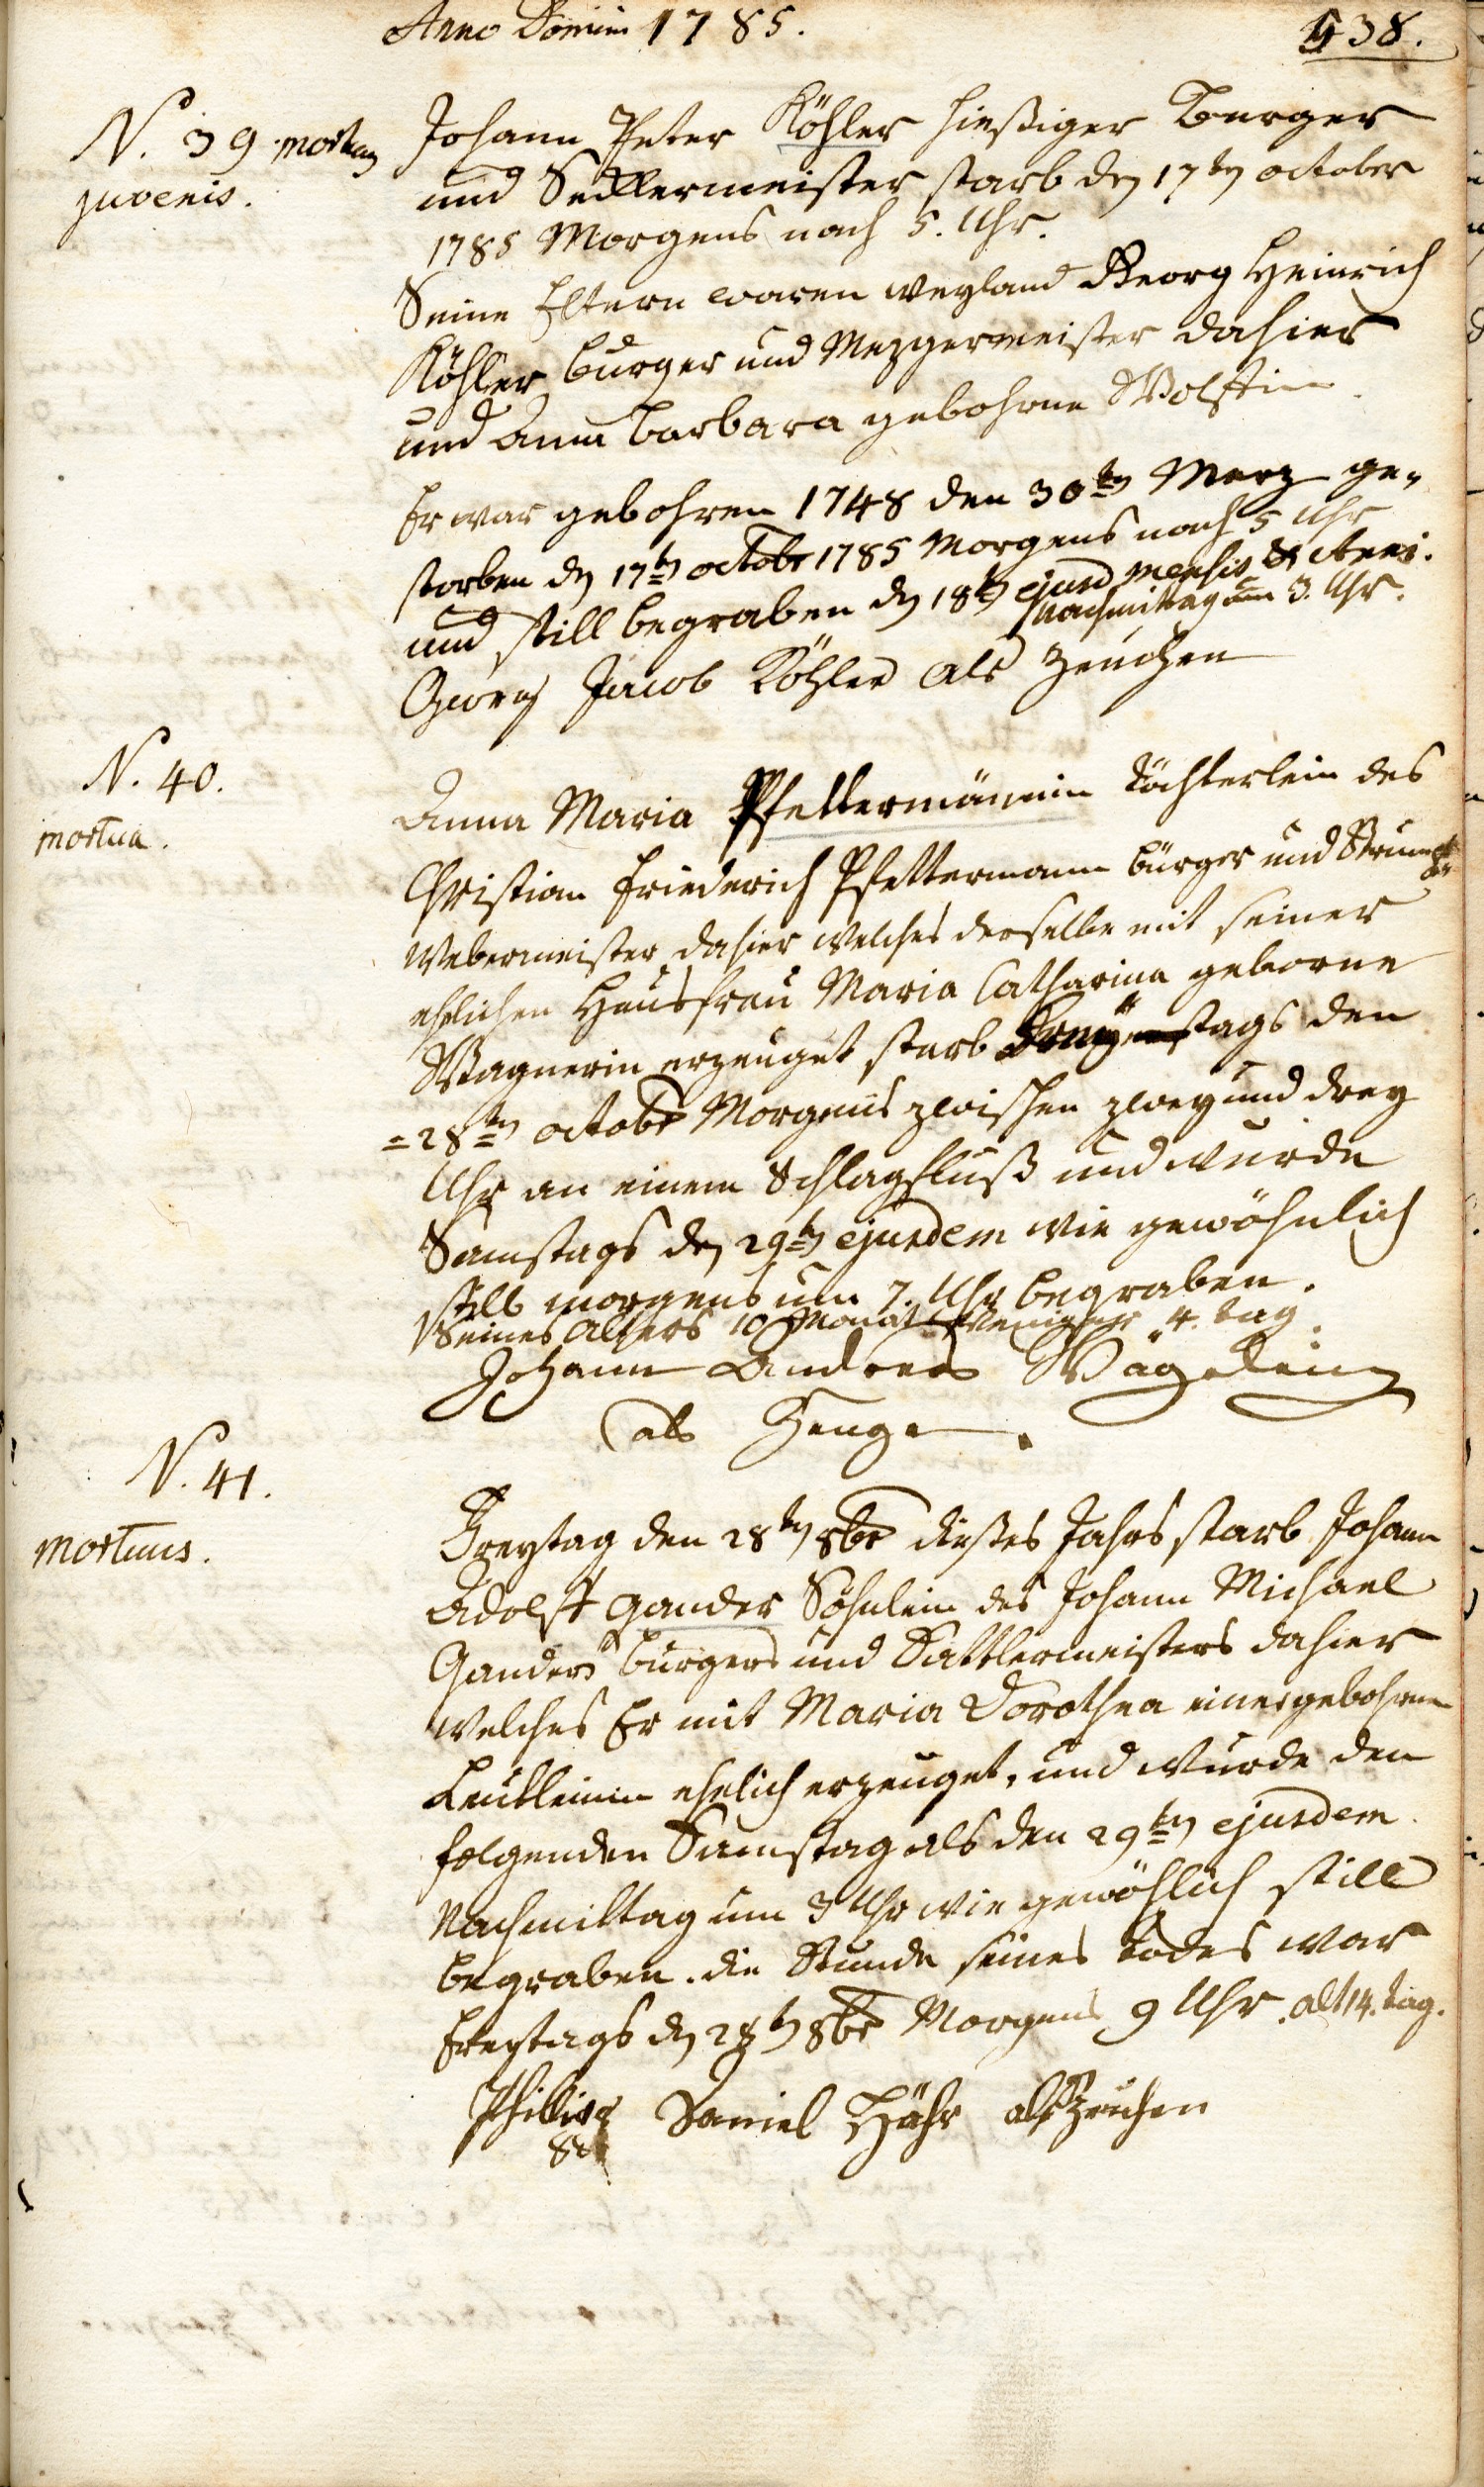 Anno Domini 1785.
438.
N. 39 mortuus
juvenis.
Johann Peter Köhler hießiger Burger
und Seklermeister starb den 17ten october
1785 Morgens nach 5. Uhr.
Seine Eltern waren weyland Georg Heinrich
Köhler burger und Mezgermeister dahier
und Anna Barbara gebohrne Wolffin
Er war gebohren 1748 den 30ten Merz ge-
storben den 17ten octobr 1785 Morgens nach 5 Uhr
und still begraben den 18ten ejusd mensis & Anni.
Nachmittag um 3. Uhr.
Georg Jacob Köhler als zeuchen
N. 40.
mortua.
Anna Maria Pfettermännin Töchterlein des
Christian Friederich Pfettermann bürger und Strumpf
Webermeister dahier welches derselbe mit seiner
ehlichen Hausfrau Maria Catharina geborne
Wagnerin erzeuget starb Freytags den
28ten octobr Morgens zwischen zwey und drey
Uhr an einem Schlagfluß und wurde
Samstags den 29ten ejusdem wie gewöhnlich
still morgens um 7. Uhr begraben.
Seines Alters 10 Monat weniger 4. tag.
Johann Andreas Wägelein
als Zeuge.
N. 41.
mortuus.
Freytag den 28ten 8br dießes Jahrs starb Johann
Adolff Gander Söhnlein des Johann Michael
Ganders burgers und Sattlermeisters dahier
welches Er mit Maria Dorothea einer gebohrnen
ehelich erzeuget, und wurde den
folgenden Samstag als den 29ten ejusdem
Nachmittag um 3 Uhr wie gewöhlich still
begraben. die Stunde seines Todes war
Freytags den 28ten 8br Morgens 9 Uhr. alt 14. tag.
Philipp Daniel Hähr als Zeuchen